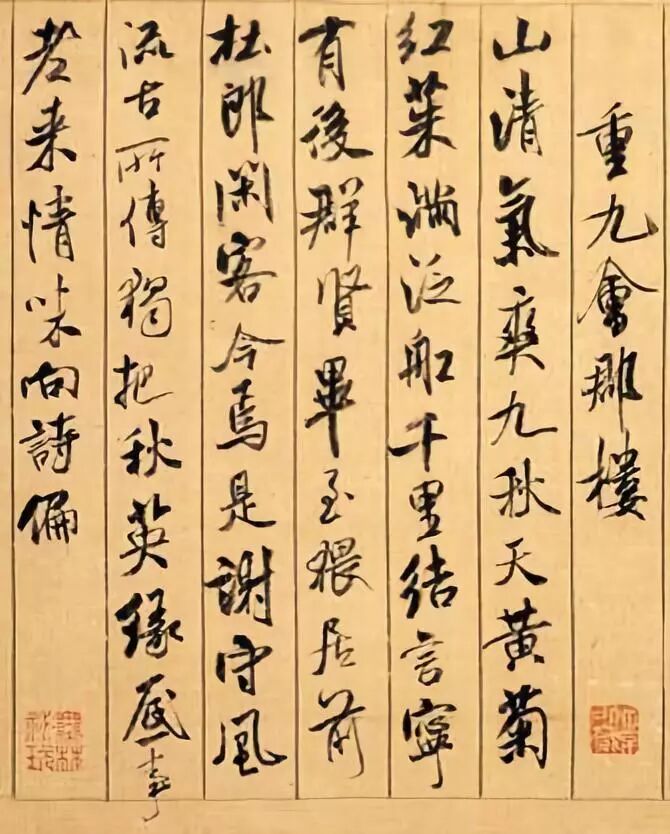 重九會郡樓
山清氣爽九秋天黃菊
紅茱滿泛船千里結言寧
有後群賢畢至猥居前
杜郎閑客今焉是謝守風
流古所傳獨把秋英緣底事
老來情味向詩偏